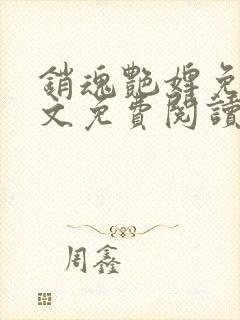 銷魂艷婢免
文免費閱讀
周鑫